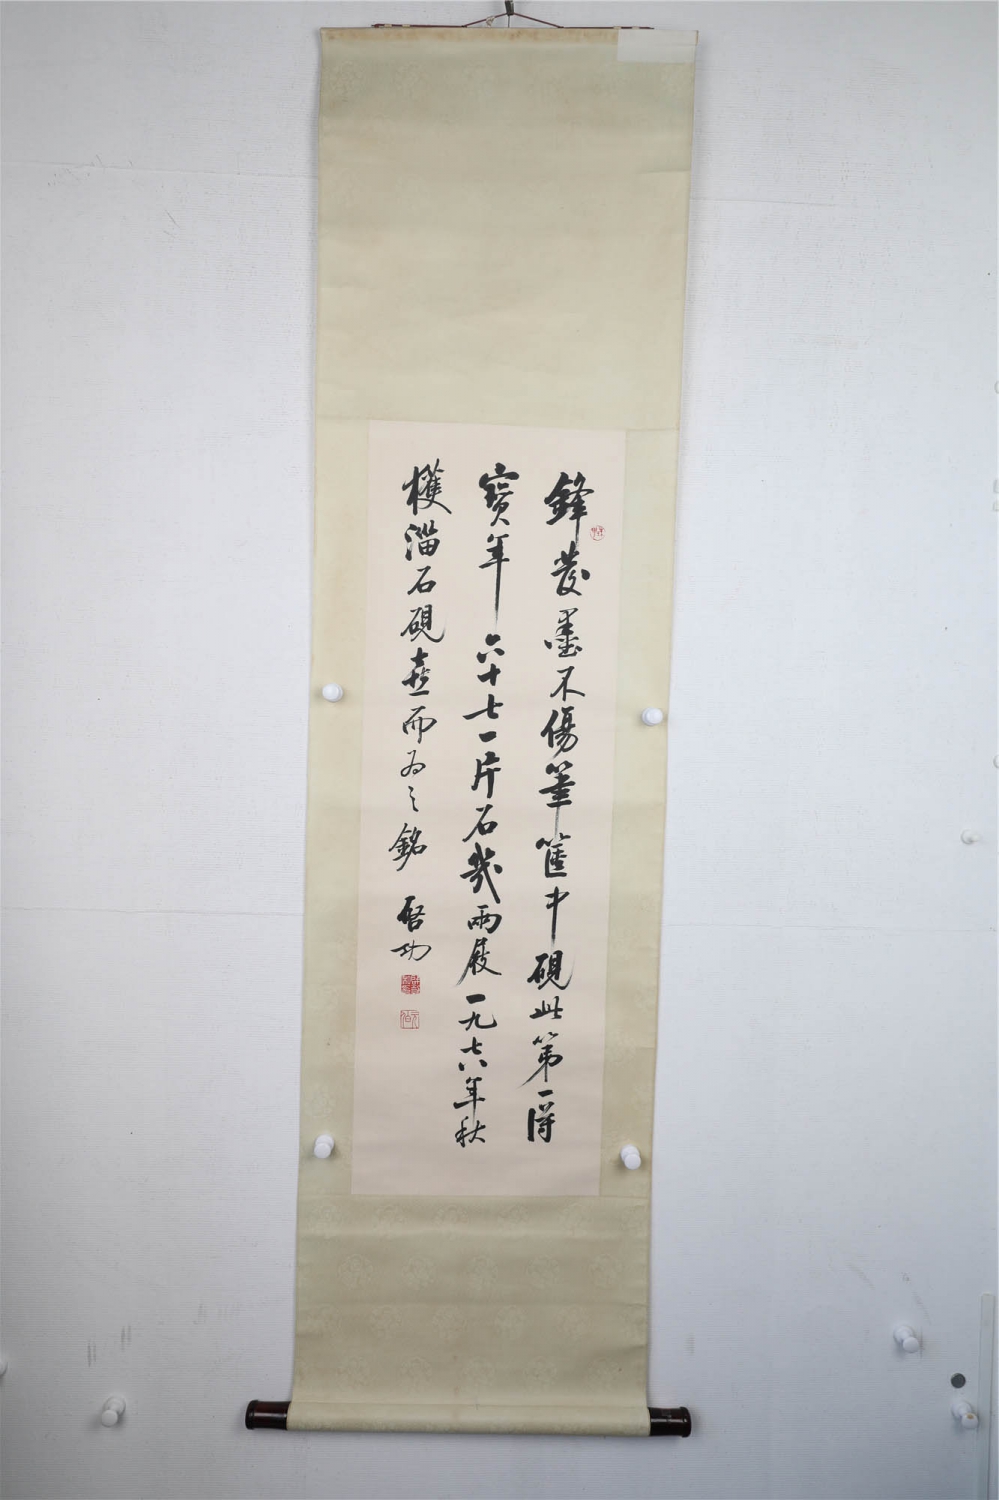 鋒發墨不傷筆篋中硯此第一得
寶年六十七一片石幾兩屐一九七六年秋
獲淄石硯喜而為之銘 啟功